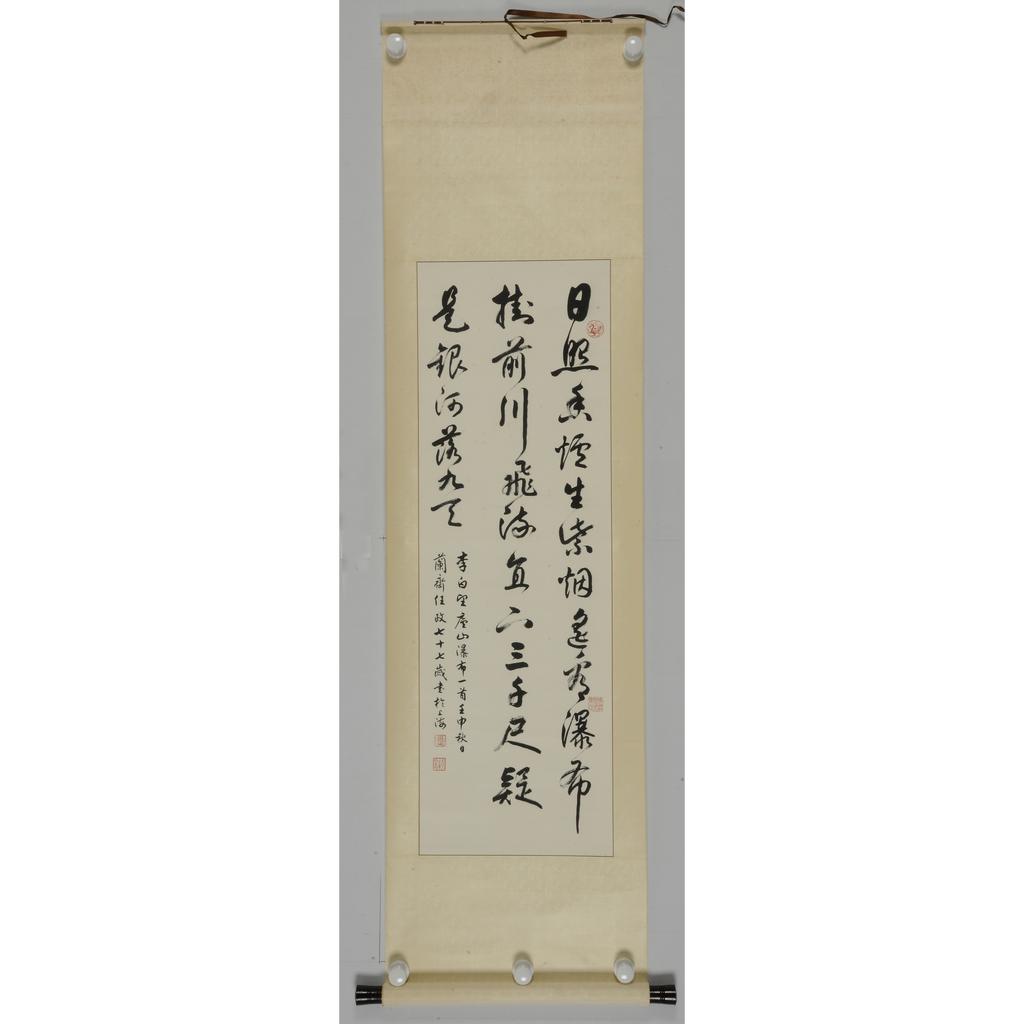 日照香爐生紫烟遙看瀑布
掛前川飛流直下三千尺疑
是銀河落九天
李白望廬山瀑布一首壬申秋日
蘭齋任政七十七歲書於上海